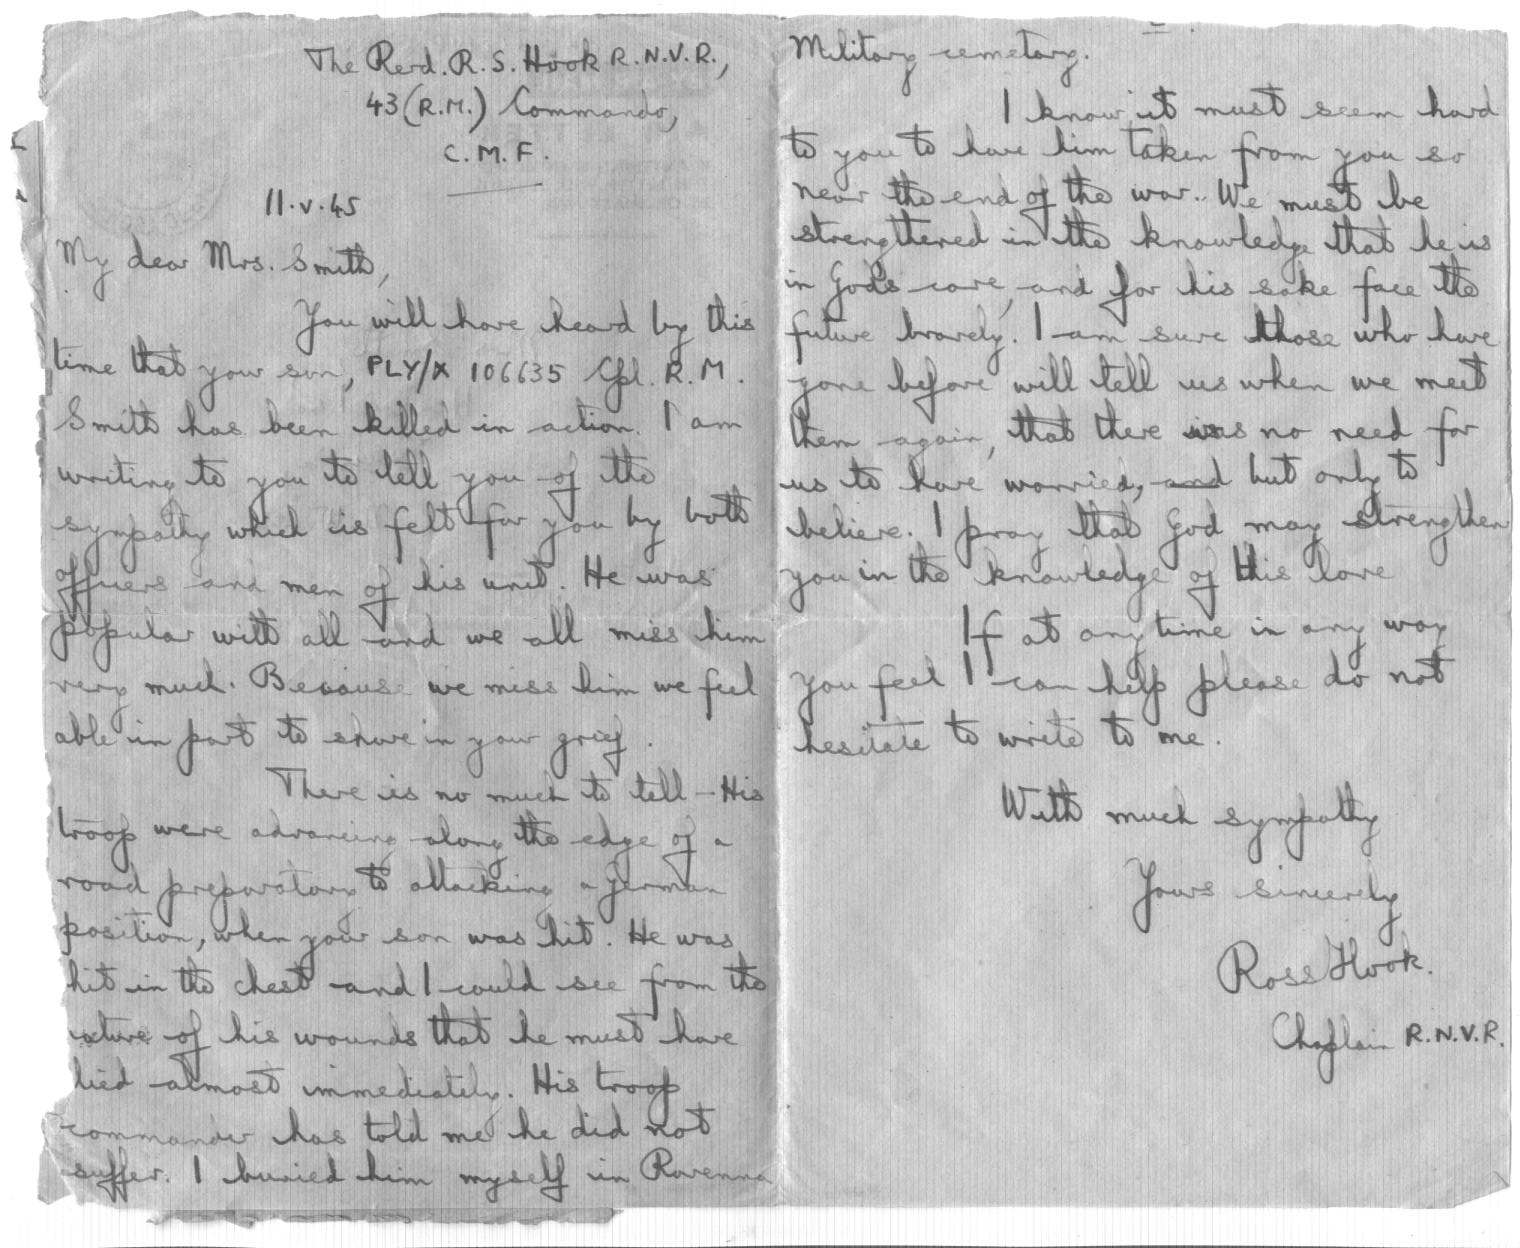 The Revd. R. S. Hook R.N.V.R.,
43 (R.M.) Commando,
C.M.F.
11.V.45
My dear Mrs. Smith,
You will have heard by this
time that your son, PLY/X 106635 Cpl. R. M.
Smith has been killed in action. I am
writing to you to tell you of the
sympathy which is felt for you by both
officers and men of his unit. He was
popular with all and we all miss him
very much. Because we miss him we feel
able in part to share in your grief.
There is no much to tell - His
troop were advancing along the edge of a
road preparatory to attacking a German
position, when your son was hit. He was
hit in the chest and I could see from the
ature of his wounds that he must have
died almost immediately. His troop
commander has told me he did not
suffer. I buried him myself in Ravenna
Military cemetary.
I know it must seem hard
to you to have him taken from you so
near the end of the war. We must be
strengthened in the knowledge that he is
in God's care, and for his sake face the
future bravely. I am sure those who have
gone before will tell us when we meet
them again, that there was no need for
us to have worried, and but only to
believe. I pray that God may strengthen
you in the knowledge of His love
If at any time in any way
you feel I can help please do not
hesitate to write to me.
With much sympathy
Yours sincerely
Ross Hook.
Chaplain R.N.V.R.